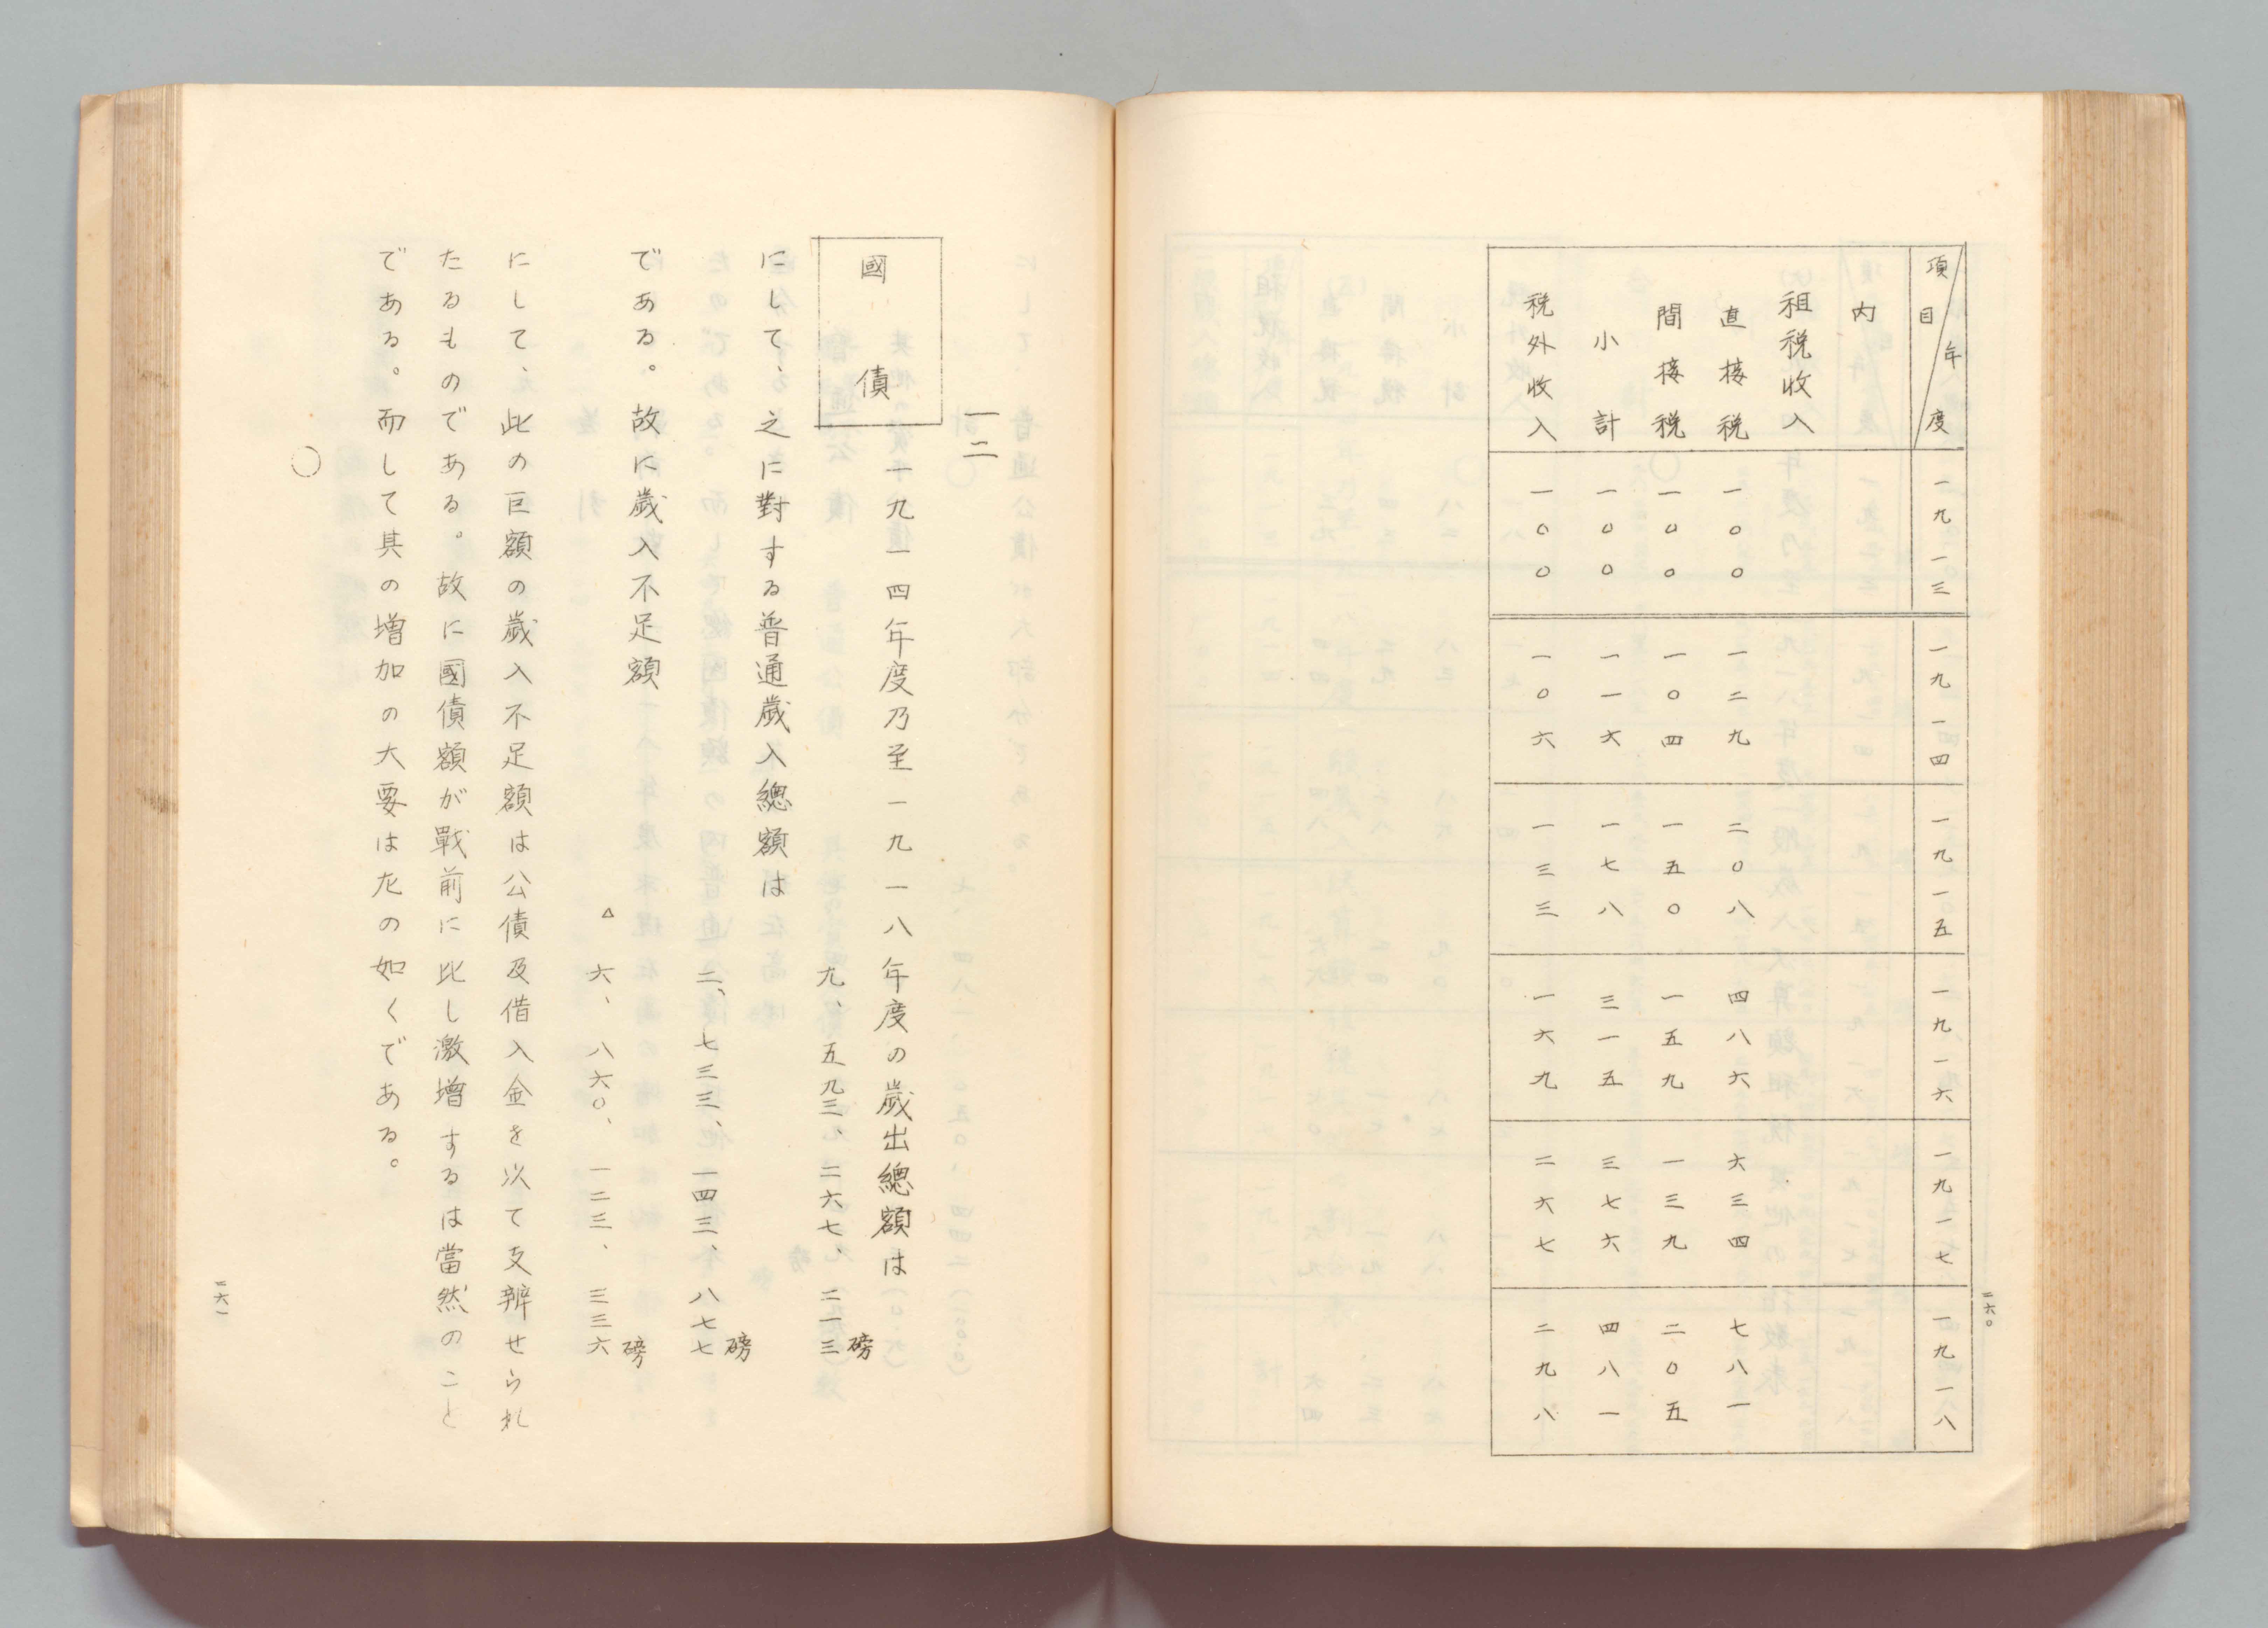 項目／年度　一九一三　一九一四　一九一五　一九一六　一九一七　一九一八
内
租税收入
直接税　一〇〇　一二九　二〇八　四八六　六三四　七八一
間接税　一〇〇　一〇四　一五〇　一五九　一三九　二〇五
小計　一〇〇　一一六　一七八　三一五　三七六　四八一
税外收入　一〇〇　一〇六　一三三　一六九　二六七　二九八
二六〇
一二
國債
一九一四年度乃至一九一八年度の歳出總額は
九、五九三、二六七、二一三磅
にして、之に對する普通歳入總額は
二、七三三、一四三、八七七磅
である。故に歳入不足額
△六、八六〇、一二三、三三六磅
にして、此の巨額の歳入不足額は公債及借入金を以て支辨せられ
たるものである。故に國債額が戰前に比し激增するは當然のこと
である。而して其の增加の大要は左の如くである。
〇
二六一